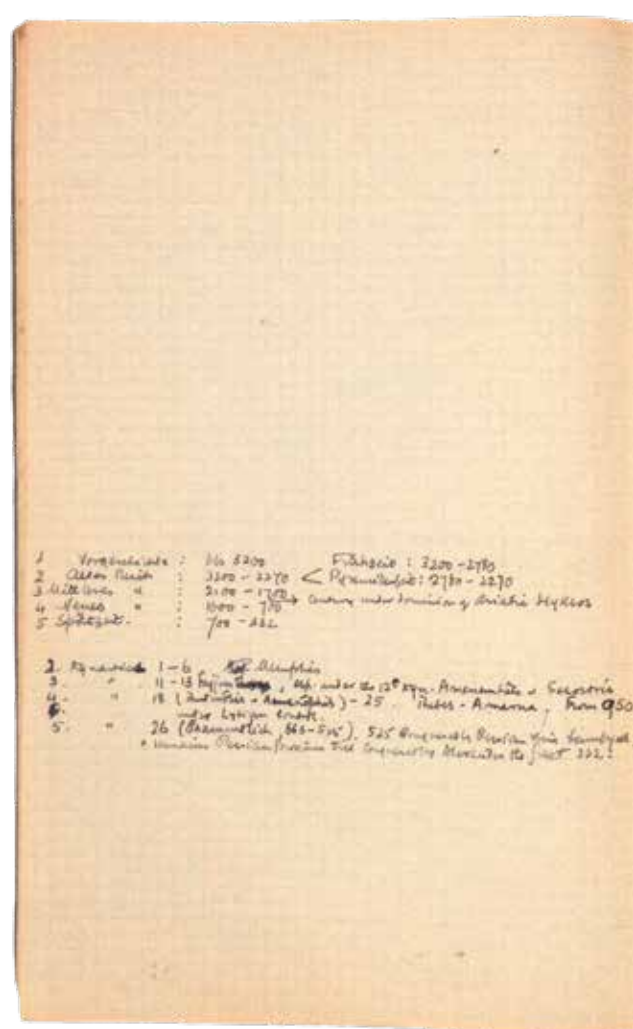 1 Vorgeschichte : bis 3200 Frühzeit : 3200 - 2780
2 Altes Reich : 3200 - 2270 < Pyramidenzeit : 2780 - 2270
3 Mittleres " : 2100 - 1700 → Century under dominion of Asiatic Hyksos
4 Neues " : 1600 - 700
5 Spätzeit. : 700 - 332
2. Dynasties 1-6, Memphis
3. " 11-13 , esp. under the 12th Dyn. Amenemhets & Sesostris
4. " 18 ( - Amenophis) - 25. Thebes - Amarna, From 950
under Libyan
5. " 26 (Psammetich, 663-525). 525 Conquered by Persian King Cambyses
& remains Persian Province till conquered by Alexander the Great 332.